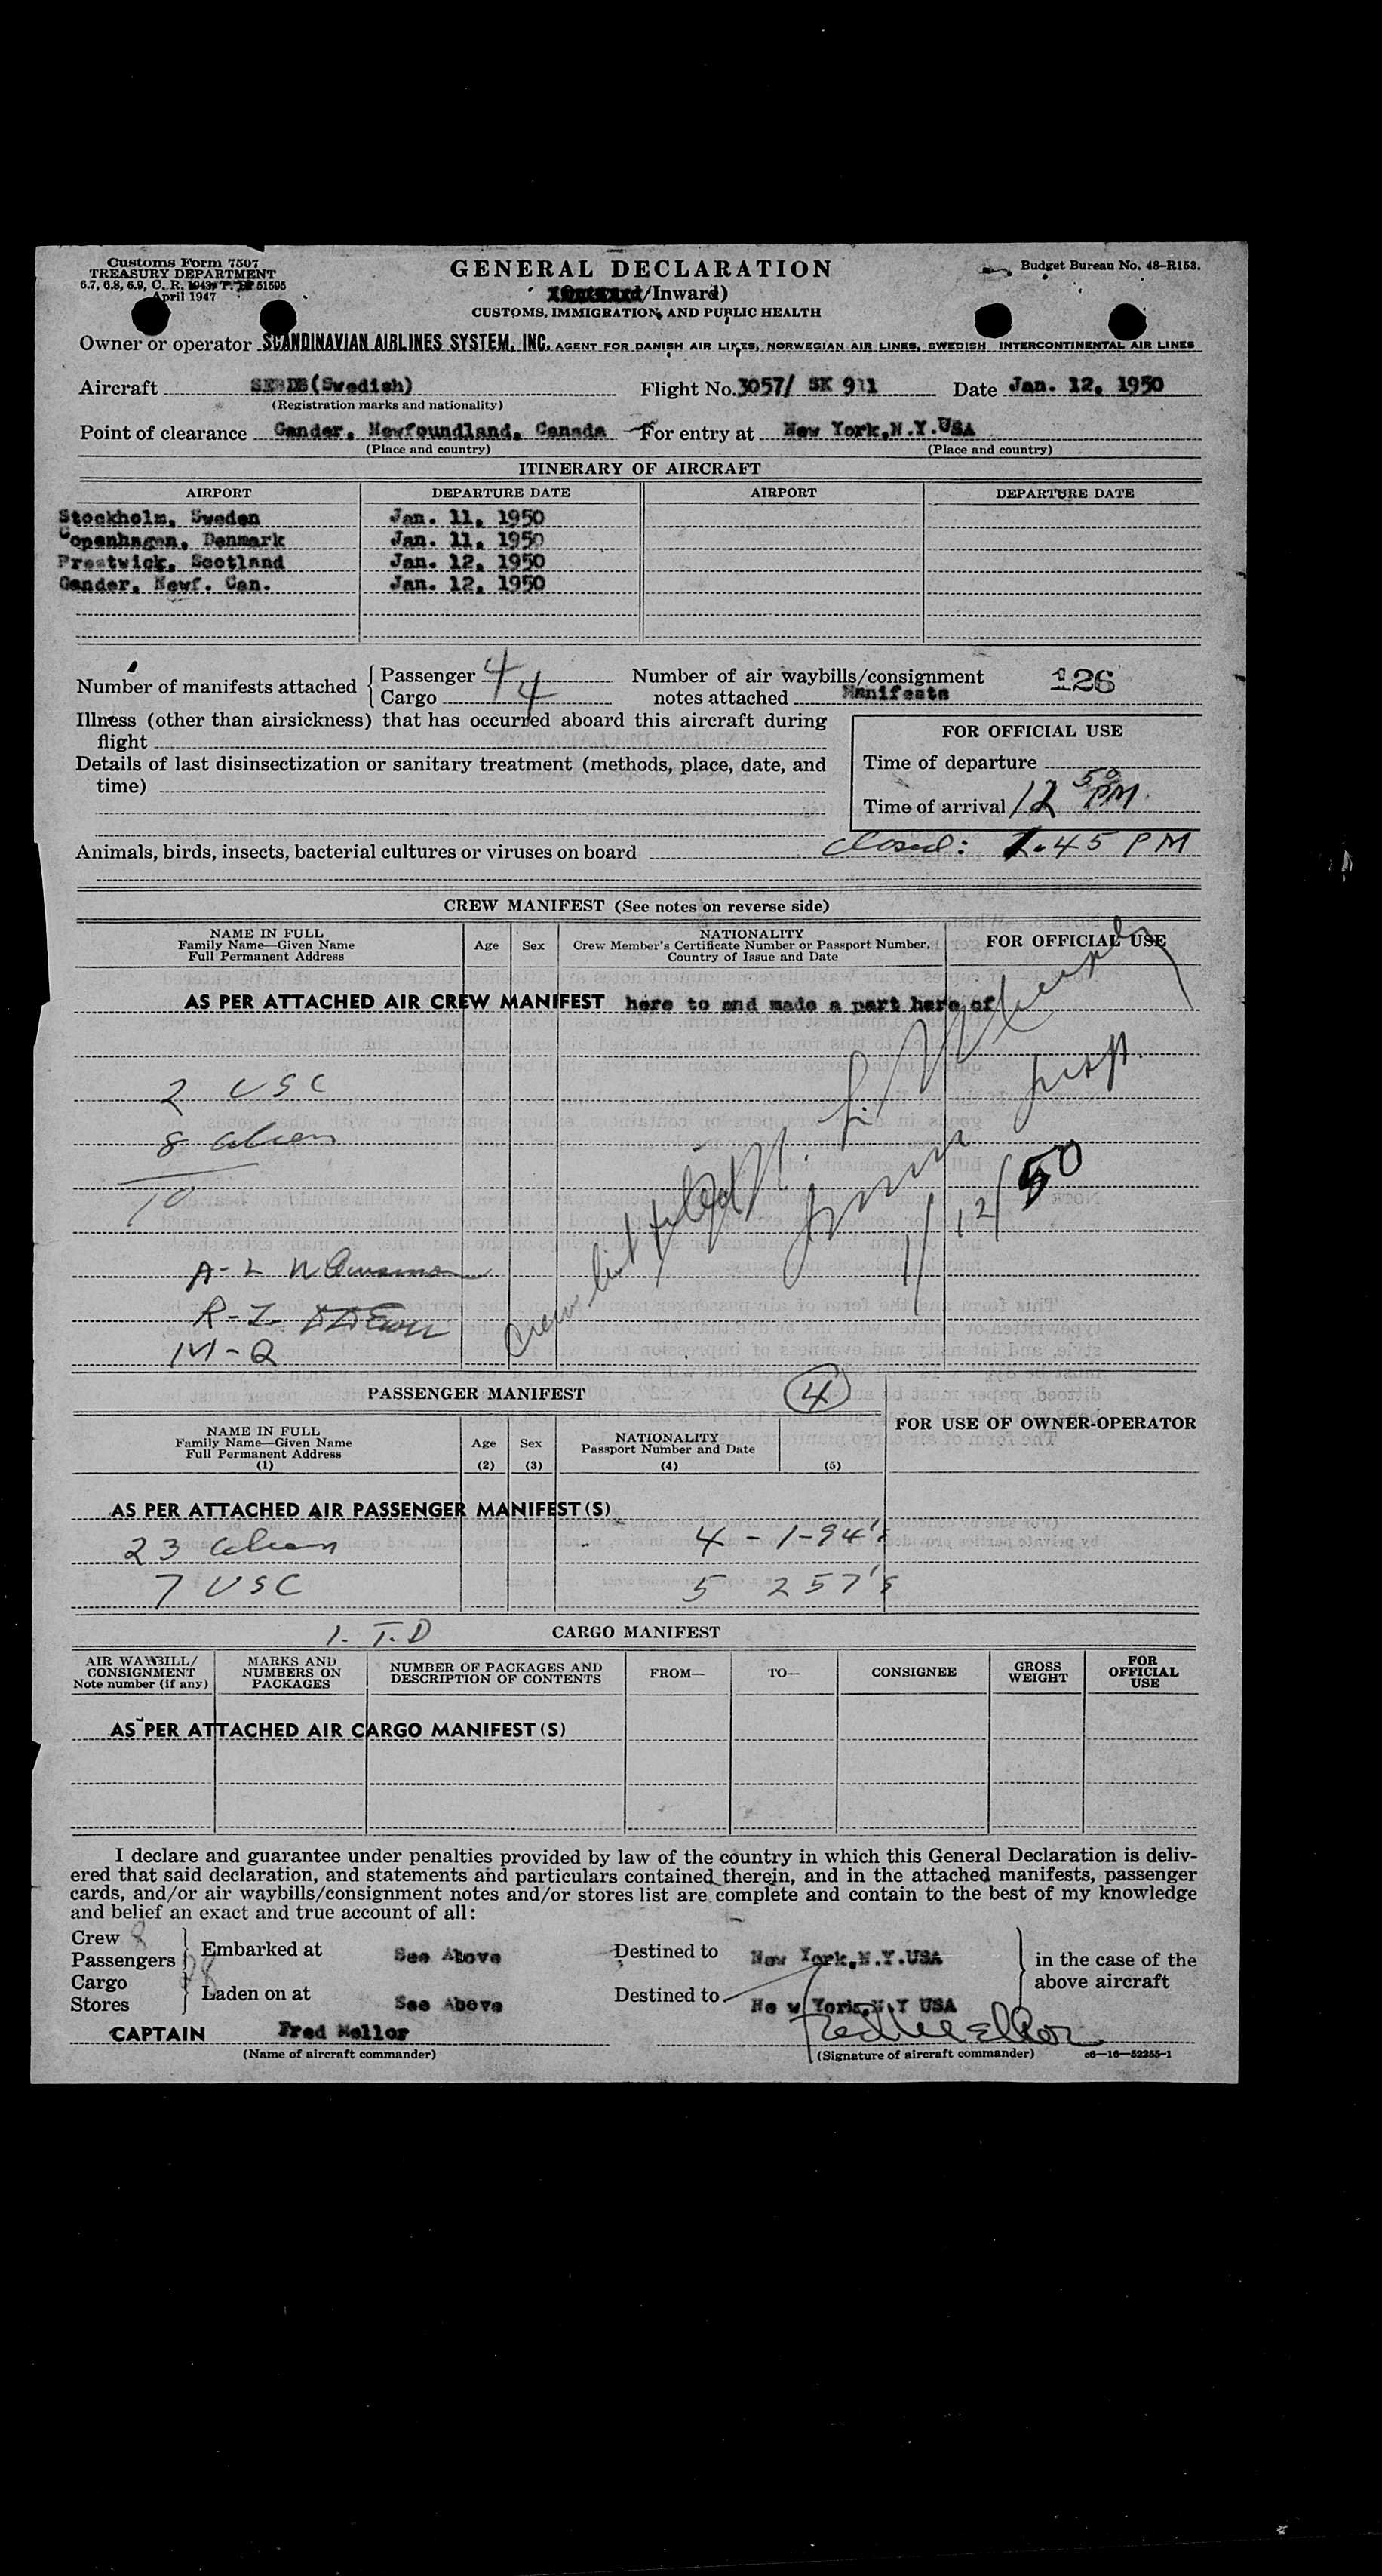 Customs Form 7507
TREASURY DEPARTMENT
6.7, 6.8, 6.9, C. R. 1943; T. D. 51595
April 1947
GENERAL DECLARATION
/Inward)
CUSTOMS, IMMIGRATION, AND PUBLIC HEALTH
Budget Bureau No. 48-R153.
Owner or operator SCANDINAVIAN AIRLINES SYSTEM, INC. AGENT FOR DANISH AIR LINES, NORWEGIAN AIR LINES, SWEDISH INTERCONTINENTAL AIR LINES
Aircraft (Swedish) Flight No. 3057/ SK 911 Date Jan. 12, 1950
(Registration marks and nationality)
Point of clearance Gander, Newfoundland, Canada For entry at New York,N.Y.USA
(Place and country) (Place and country)
ITINERARY OF AIRCRAFT
AIRPORT DEPARTURE DATE AIRPORT DEPARTURE DATE
Stockholm, Sweden Jan. 11, 1950
Copenhagen, Denmark Jan. 11, 1950
Prestwick, Scotland Jan. 12, 1950
Gander, Newf. Can. Jan. 12, 1950
Number of manifests attached { Passenger 4
Cargo 4
Number of air waybills/consignment
notes attached Manifests
126
Illness (other than airsickness) that has occurred aboard this aircraft during
flight
Details of last disinsectization or sanitary treatment (methods, place, date, and
time)
FOR OFFICIAL USE
Time of departure
Time of arrival 12 50 PM
Closed: 1.45 PM
Animals, birds, insects, bacterial cultures or viruses on board
CREW MANIFEST (See notes on reverse side)
NAME IN FULL
Family Name—Given Name
Full Permanent Address
Age Sex
NATIONALITY
Crew Member's Certificate Number or Passport Number,
Country of Issue and Date
FOR OFFICIAL USE
AS PER ATTACHED AIR CREW MANIFEST here to and made a part here of
2 USC
8 alien
10
A-L
R-I
M-Q
Crew list filed
Imm Insp.
1/12/50
PASSENGER MANIFEST
4
FOR USE OF OWNER-OPERATOR
NAME IN FULL
Family Name—Given Name
Full Permanent Address
(1)
Age
(2)
Sex
(3)
NATIONALITY
Passport Number and Date
(4) (5)
AS PER ATTACHED AIR PASSENGER MANIFEST(S)
23 alien 4 - 1-94's
7 USC 5 257's
1. T.D
CARGO MANIFEST
AIR WAYBILL/
CONSIGNMENT
Note number (if any)
MARKS AND
NUMBERS ON
PACKAGES
NUMBER OF PACKAGES AND
DESCRIPTION OF CONTENTS
FROM— TO— CONSIGNEE
GROSS
WEIGHT
FOR
OFFICIAL
USE
AS PER ATTACHED AIR CARGO MANIFEST(S)
I declare and guarantee under penalties provided by law of the country in which this General Declaration is deliv-
ered that said declaration, and statements and particulars contained therein, and in the attached manifests, passenger
cards, and/or air waybills/consignment notes and/or stores list are complete and contain to the best of my knowledge
and belief an exact and true account of all:
Crew 8
Passengers
Cargo
Stores
Embarked at See Above Destined to New York,N.Y.USA
Laden on at See Above Destined to Ne w York,N.Y USA
in the case of the
above aircraft
CAPTAIN Fred Mellor Fred Mellor
(Name of aircraft commander) (Signature of aircraft commander) c6—16—52255-1